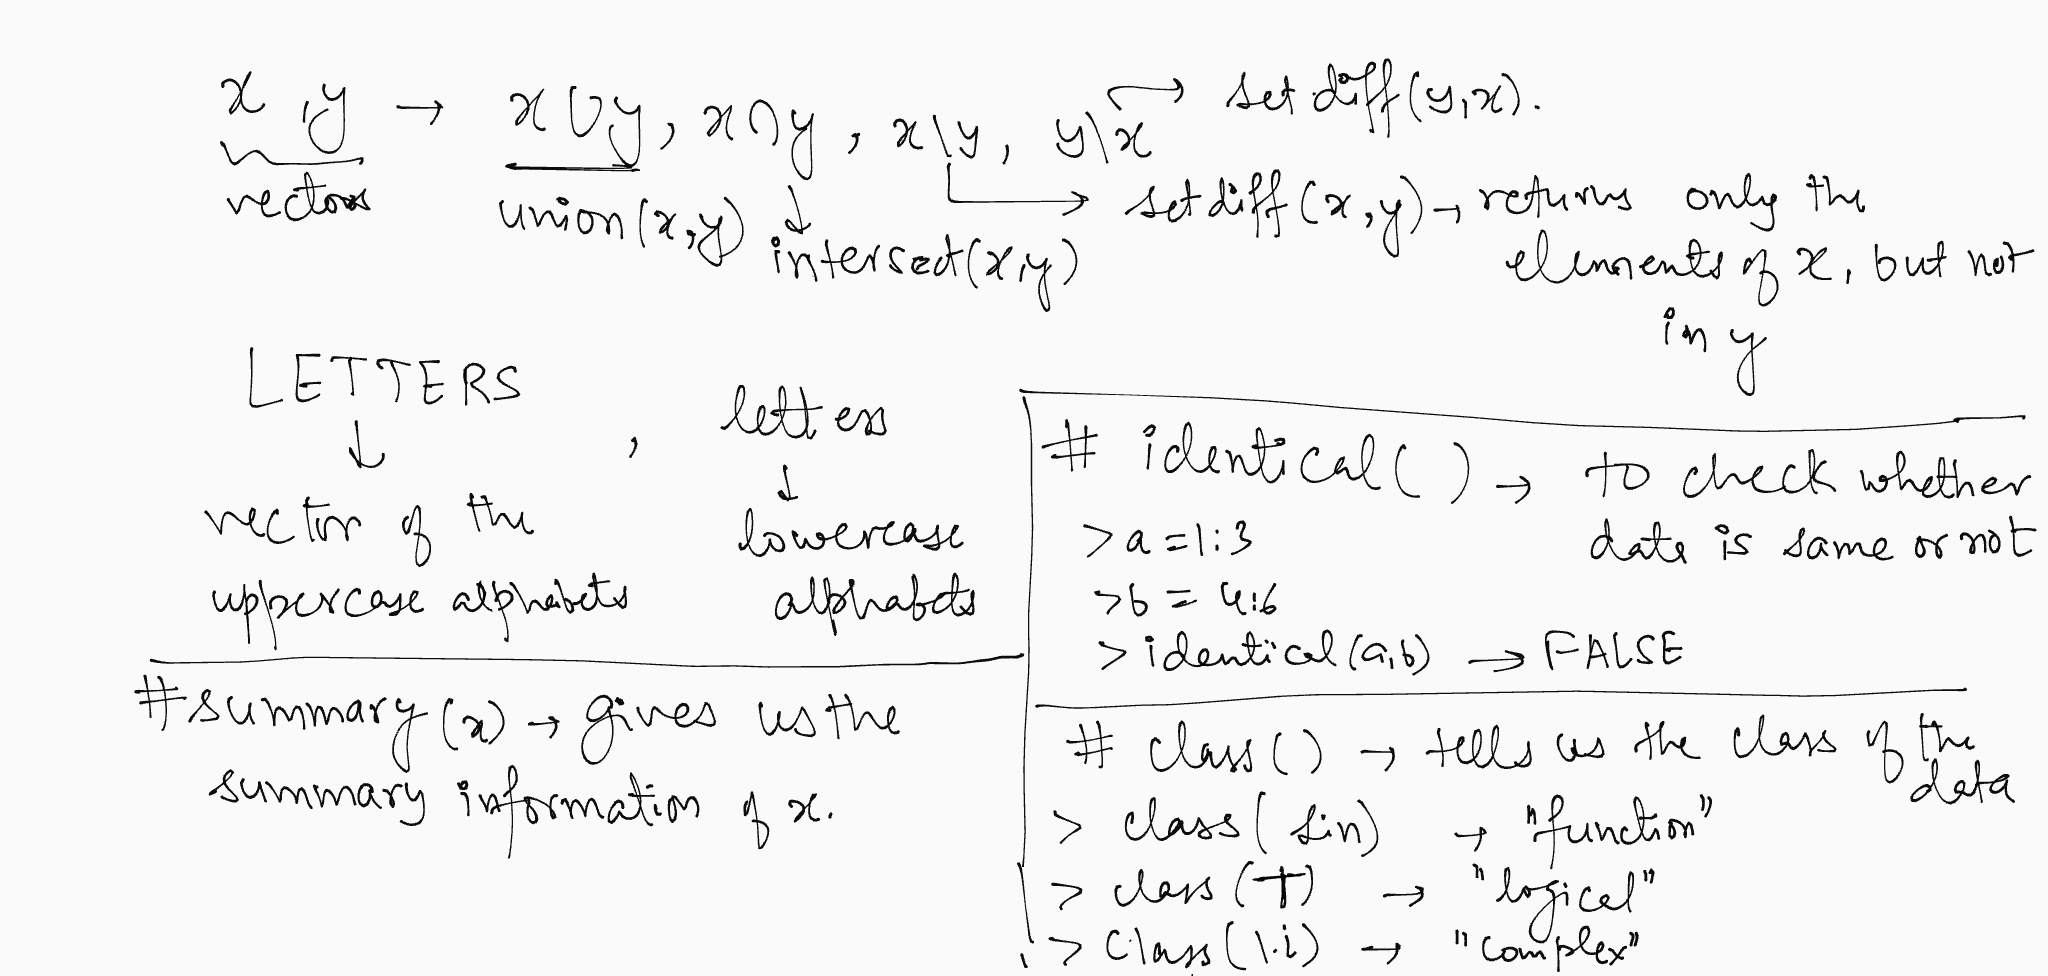 x, y → x∪y, x∩y, x\y, y\x → setdiff(y,x).
vectors
union(x,y)
↓
intersect(x,y)
→ setdiff(x,y) → returns only the
elements of x, but not
in y
LETTERS , letters
↓ ↓
vector of the
uppercase alphabets
lowercase
alphabets
#summary(x) → gives us the
summary information of x.
# identical( ) → to check whether
data is same or not
>a=1:3
>b=4:6
>identical(a,b) → FALSE
# class() → tells us the class of the
data
> class(sin) → "function"
> class(T) → "logical"
> class(1.i) → "complex"